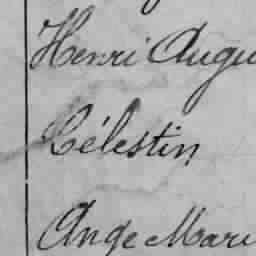 Henri Augu
Célestin
Ange Mari